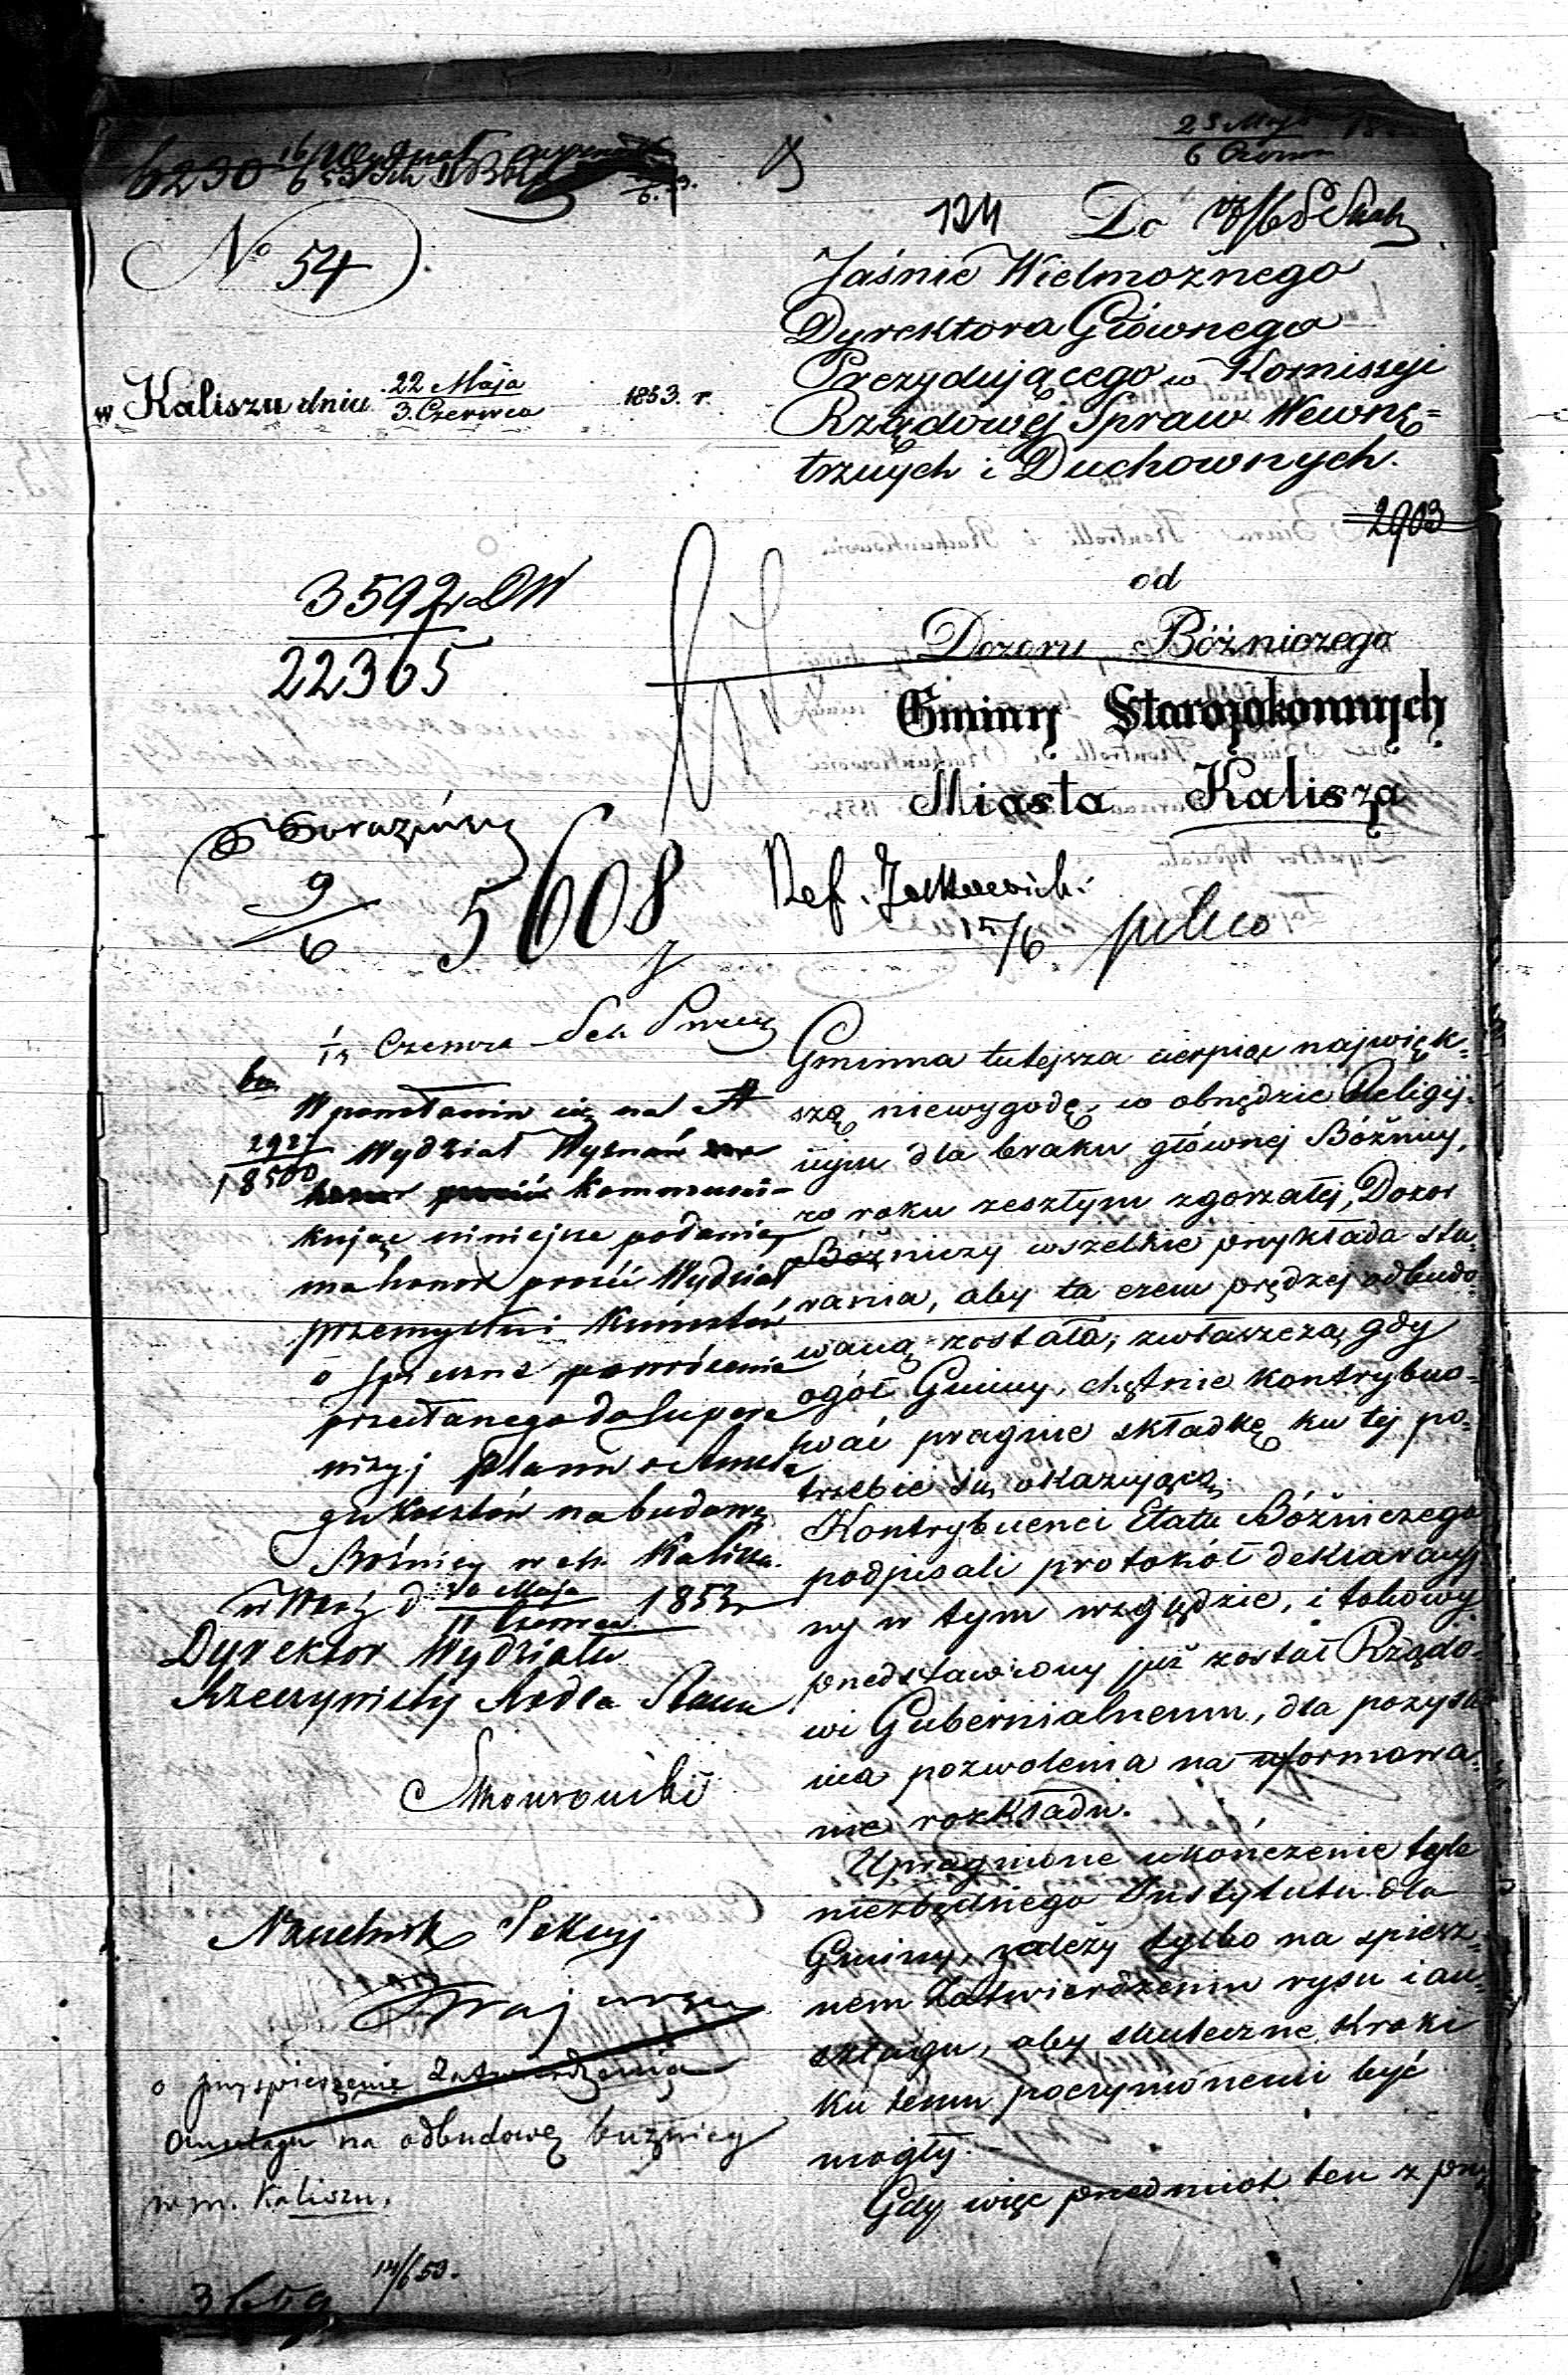 6230
23 Maja
6 Czerw
No 54
124 Do
Jaśnie Wielmożnego
Dyrektora Głównego
Prezydującego w Komissyi
Rządowéj Spraw Wewnę=
trznych i Duchownych.
w Kaliszu dniu 22 Maja
3 Czerwca 1853. r.
2903
od
Dozoru Bóżniczego
Gminy Starozakonnych
Miasta Kalisza
3592
22365
9/6
5608
Ref.
15/6 pilno
Czerwca
W
2927
18500
Wydział Wyznań
kommuni-
kując niniejsze podanie,
ma honor prosić Wydział
przemysłu i Kunsztów
o spieszne powrócenie
przesłanego do Supere
wizyj planu i Anszla
gu kosztów na budowę
Bóżnicy w m. Kalisz.
w Warsz d. 30 Maja
11 Czerwca 1853 r
Dyrektor Wydziału
Rzeczywisty Radca Stanu
Naczelnik Sekcyj
o przyspieszenie Zatwierdzenia
Anszlagu na odbudowę bużnicy
w m. Kaliszu.
14/6 53.
3659
Gminna tutejsza cierpiąc najwięk=
szą niewygodę, w obrzędzie Religij-
nym dla braku głównej Bóżnicy,
w roku zeszłym zgorzałej, Dozór
Bóżniczy wszelkie przykłada sta-
rania, aby ta czem prędzej odbudo-
waną została; zwłaszcza, gdy
ogół Gminy, chętnie kontrybuo-
wać pragnie składkę ku tej po-
trzebie się okazującą.
Kontrybuenci Etatu Bóżniczego
podpisali protokół deklaracyj
ny w tym względzie, i takowy
przedstawiony już został Rządo-
wi Gubernialnemu, dla pozyska
nia pozwolenia na uformowa-
nie rozkładu.
Upragnione ukończenie tyle
niezbędnego Instytutu dla
Gminy, zależy tylko na spiesz-
nem Zatwierdzeniu rysu i an-
szlagu, aby skuteczne kroki
ku temu poczynionemi być
mogły.-
Gdy więc przedmiot ten z przy